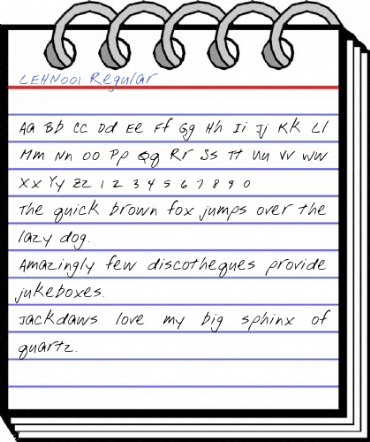 LEHN001 Regular
Aa Bb Cc Dd Ee Ff Gg Hh Ii Jj Kk Ll
Mm Nn Oo Pp Qq Rr Ss Tt Uu Vv Ww
Xx Yy Zz 1 2 3 4 5 6 7 8 9 0
The quick brown fox jumps over the
lazy dog.
Amazingly few discotheques provide
jukeboxes.
Jackdaws love my big sphinx of
quartz.